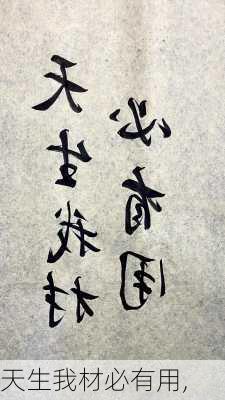 天生我材
必有用
天生我材必有用,